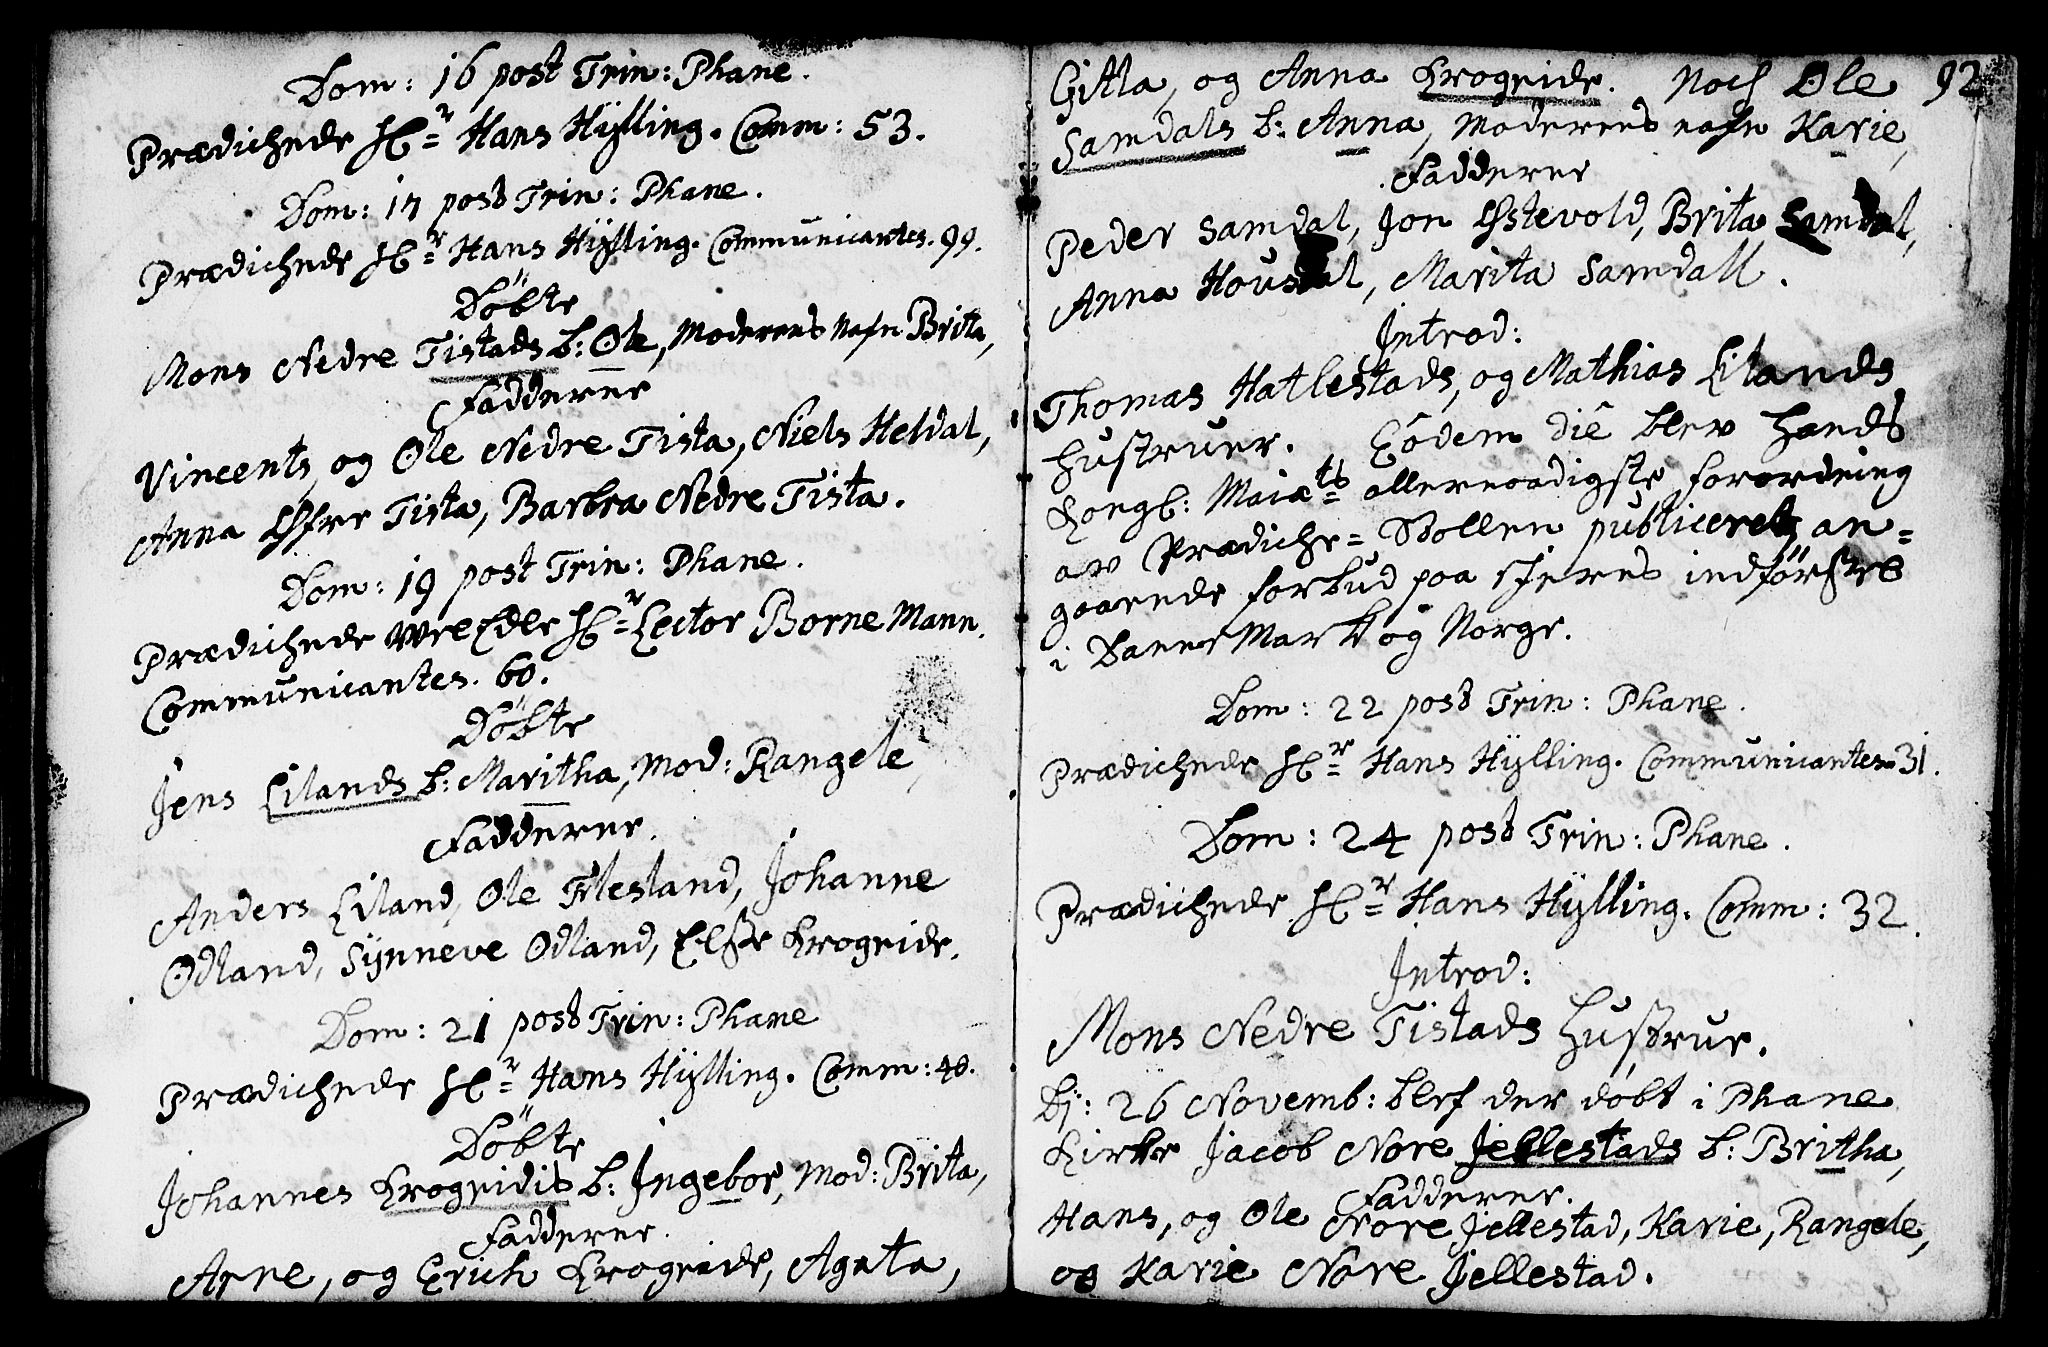 Dom: 16 post Trin: Phane.
Prædichede Hr Hans Hÿlling. Comm: 53.
Dom: 17 post Trin: Phane.
Prædichede Hr Hans Hÿlling. Communicantes. 99.
Döbte
Mons Nedre Tistads b: Ole, Moderens Nafn Brita,
Fadderer
Vincents, og Ole Nedre Tista, Niels Heldal,
Anna Øfre Tista, Barbra Nedre Tista.
Dom: 19 post Trin: Phane.
Prædichede WelEdle Hr Lector BorneMann.
Communicantes. 60.
Döbte
Jens Lilands b: Maritha, Mod: Rangele,
Fadderer.
Anders Liland, Ole Flesland, Johanne
Odland, Sÿnneve Odland, Elsse Krogeide.
Dom: 21 post Trin: Phane
Prædichede Hr Hans Hÿlling. Comm: 40.
Döbte
Johannes Krogeidis b: Ingebor, Mod: Brita,
Fadderer.
Arne, og Erich Krogeide, Agata,
92
Gitla, og Anna Krogeide. Noch Ole
Samdals b: Anna, Moderens nafn Karie,
Fadderer
Peder Samdal, Jon Østevold, Brita Samdal,
Anna Housdal, Marita Samdall.
Introd:
Thomas Hatlestads, og Mathias Lilands
Hustruer. Eodem die blev Hands
Kongl: Maiæts allernaadigste forordning
av Prædiche-Stollen publiceret, an-
gaaende forbud paa indförsel
i Dannemark og Norge.
Dom: 22 post Trin: Phane.
Prædichede Hr Hans Hÿlling. Communicantes 31.
Dom: 24 post Trin: Phane.
Prædichede Hr Hans Hÿlling. Comm: 32.
Introd:
Mons Nedre Tistads Hustrue.
Dj: 26 Novemb: blef der döbt i Phane
Kirke Jacob Nore Jellestads b: Britha,
Fadderer.
Hans, og Ole Nore Jellestad, Karie, Rangele,
og Karie Nore Jellestad.